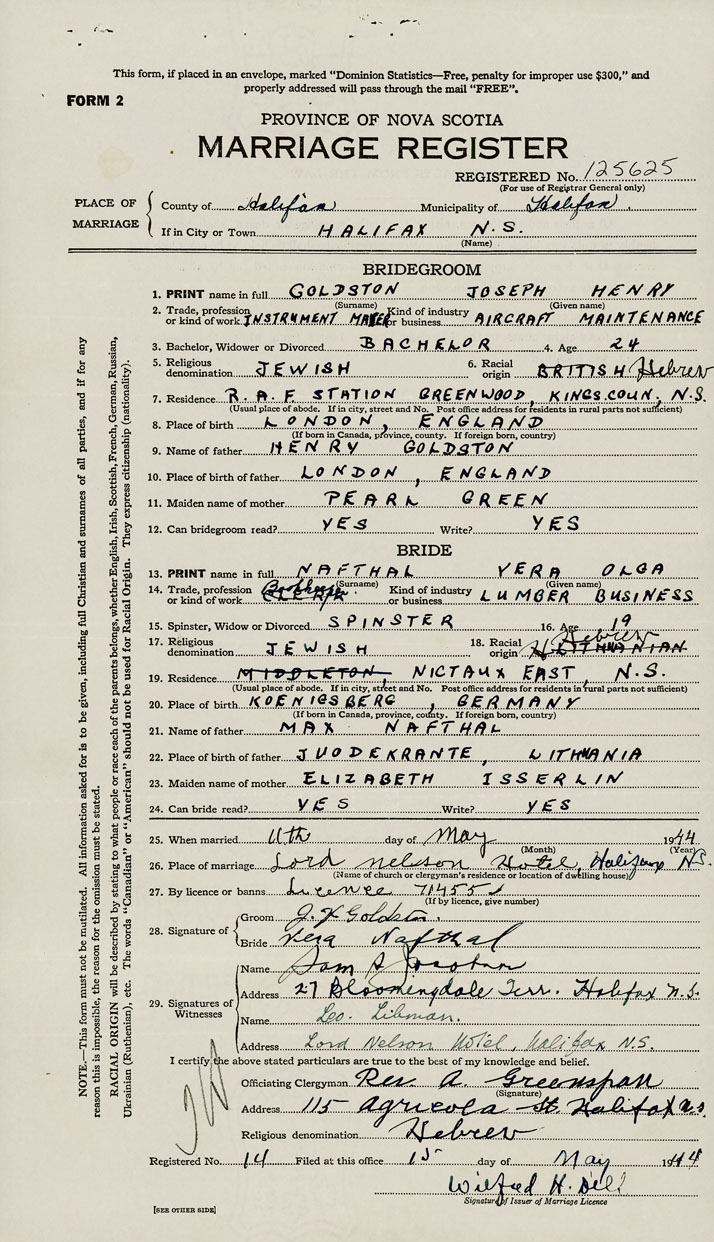 This form, if placed in an envelope, marked "Dominion Statistics—Free, penalty for improper use $300," and
properly addressed will pass through the mail "FREE".
FORM 2
PROVINCE OF NOVA SCOTIA
MARRIAGE REGISTER
REGISTERED No. 125625
(For use of Registrar General only)
PLACE OF MARRIAGE
County of Halifax Municipality of Halifax
If in City or Town HALIFAX N.S.
(Name)
BRIDEGROOM
1. PRINT name in full GOLDSTON JOSEPH HENRY
(Surname) (Given name)
2. Trade, profession or kind of work INSTRUMENT MAKER Kind of industry or business AIRCRAFT MAINTENANCE
3. Bachelor, Widower or Divorced BACHELOR 4. Age 24
5. Religious denomination JEWISH 6. Racial origin BRITISH Hebrew
7. Residence R.A.F STATION GREENWOOD, KINGS.COUN, N.S.
(Usual place of abode. If in city, street and No. Post office address for residents in rural parts not sufficient)
8. Place of birth LONDON, ENGLAND
(If born in Canada, province, county. If foreign born, country)
9. Name of father HENRY GOLDSTON
10. Place of birth of father LONDON, ENGLAND
11. Maiden name of mother PEARL GREEN
12. Can bridegroom read? YES Write? YES
BRIDE
13. PRINT name in full NAFTHAL VERA OLGA
(Surname) (Given name)
14. Trade, profession or kind of work CLERK Kind of industry or business LUMBER BUSINESS
15. Spinster, Widow or Divorced SPINSTER 16. Age 19
17. Religious denomination JEWISH 18. Racial origin Hebrew LITHUANIAN
19. Residence MIDDLETON, NICTAUX EAST, N.S.
(Usual place of abode. If in city, street and No. Post office address for residents in rural parts not sufficient)
20. Place of birth KOENIGSBERG, GERMANY
(If born in Canada, province, county. If foreign born, country)
21. Name of father MAX NAFTHAL
22. Place of birth of father JUODEKRANTE, LITHUANIA
23. Maiden name of mother ELIZABETH ISSERLIN
24. Can bride read? YES Write? YES
25. When married 11th day of May 1944
(Month) (Year)
26. Place of marriage Lord Nelson Hotel, Halifax N.S.
(Name of church or clergyman's residence or location of dwelling house)
27. By licence or banns Licence 71455
(If by licence, give number)
28. Signature of
Groom J. H Goldston.
Bride Vera Nafthal
29. Signatures of Witnesses
Name Sam
Address 27 Bloomingdale Terr. Halifax N.S.
Name Leo. Libman.
Address Lord Nelson Hotel, Halifax N.S.
I certify the above stated particulars are true to the best of my knowledge and belief.
Officiating Clergyman Rev. A. Greenspan
(Signature)
Address 115 Agricola St. Halifax N.S.
Religious denomination Hebrew
Registered No. 14 Filed at this office 15 day of May 1944
Wilfred H. Dill
Signature of Issuer of Marriage Licence
[SEE OTHER SIDE]
NOTE.—This form must not be mutilated. All information asked for is to be given, including full Christian and surnames of all parties, and if for any
reason this is impossible, the reason for the omission must be stated.
RACIAL ORIGIN will be described by stating to what people or race each of the parents belongs, whether English, Irish, Scottish, French, German, Russian,
Ukrainian (Ruthenian), etc. The words "Canadian" or "American" should not be used for Racial Origin. They express citizenship (nationality).